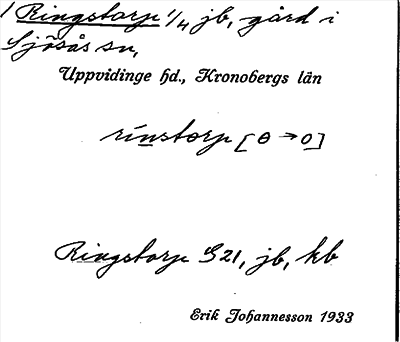 1 Ringstorp 1/4 jb, gård i
Sjösås sn,
Uppvidinge hd., Kronobergs län
rinstorp [θ → o]
Ringstorp S 21, jb, kb
Erik Johannesson 1933